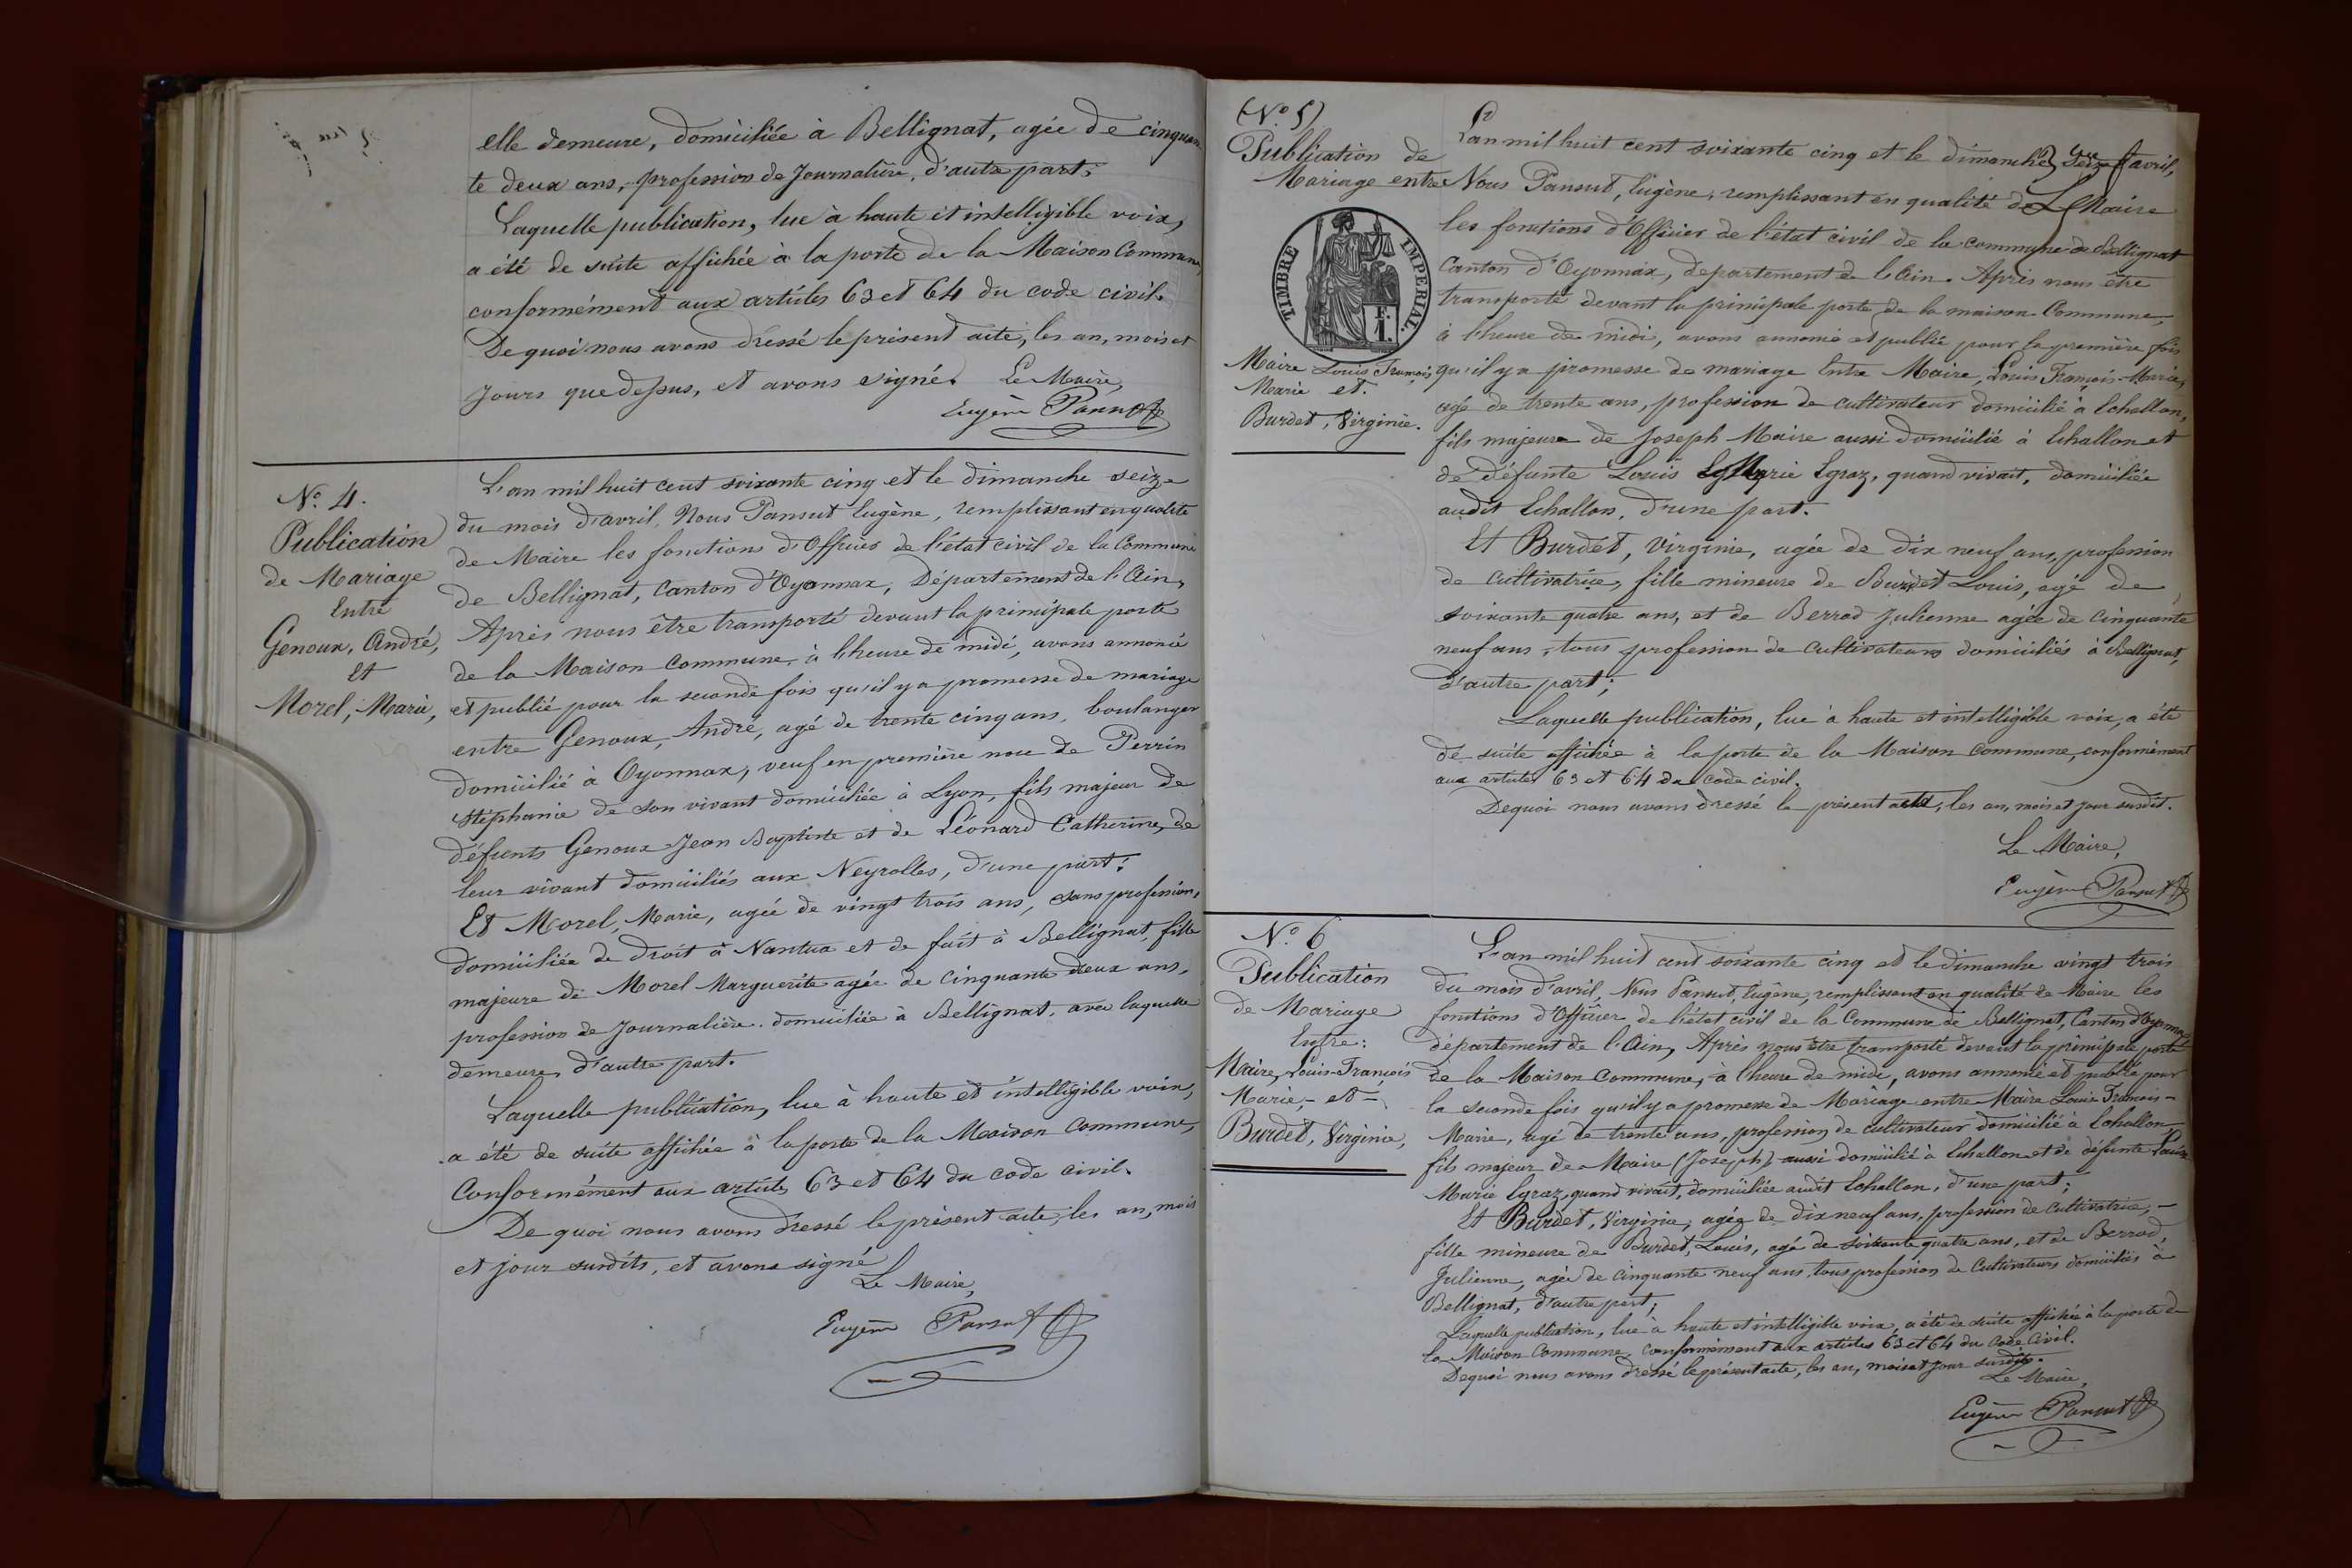 elle demeure, domiciliée à Bellignat, agée de cinquan
te deux ans, profession de Journalière, d'autre part.
Laquelle publication, lue à haute et intelligible voix,
a été de suite affichée à la porte de la Maison Commune,
conformément aux articles 63 et 64 du code civil.
De quoi nous avons dressé le présent acte, les an, mois et
jours que dessus, et avons signé. Le Maire,
Eugène Pansut
No. 4.
Publication
de Mariage
Entre
Genoux, André,
Et
Morel, Marie,
L'an mil huit cent soixante cinq et le dimanche seize
du mois d'avril, Nous Pansut Eugène, remplissant en qualité
de Maire les fonctions d'Officier de l'état civil de la Commune
de Bellignat, Canton d'Oyonnax, Département de l'Ain,
Après nous être transporté devant la principale porte
de la Maison Commune, à l'heure de midi, avons annoncé
et publié pour la seconde fois qu'il y a promesse de mariage
entre Genoux, André, agé de trente cinq ans, boulanger
domicilié à Oyonnax, veuf en première noce de Perrin
Stéphanie de son vivant domiciliée à Lyon, fils majeur de
défunts Genoux Jean Baptiste et de Léonard Catherine, de
leur vivant domiciliés aux Neyrolles, d'une part:
Et Morel, Marie, agée de vingt trois ans, sans profession,
domiciliée de droit à Nantua et de fait à Bellignat, fille
majeure de Morel Marguerite agée de cinquante deux ans,
profession de Journalière. domiciliée à Bellignat, avec laquelle
demeure, d'autre part.
Laquelle publication, lue à haute et intelligible voix,
a été de suite affichée à la porte de la Maison Commune,
Conformément aux articles 63 et 64 du code civil.
De quoi nous avons dressé le présent acte, les an, mois
et jour susdits, et avons signé
Le Maire,
Eugène Pansut
(No. 5)
Publication de
Mariage entre
TIMBRE IMPERIAL.
1 F.
Maire Louis François
Marie et.
Burdet, Virginie.
L'an mil huit cent soixante cinq et le dimanche seize avril,
Nous Pansut, Eugène, remplissant en qualité de Maire
les fonctions d'Officier de l'état civil de la commune de Bellignat
Canton d'Oyonnax, département de l'Ain. Après nous être
transporté devant la principale porte de la maison Commune,
à l'heure de midi, avons annoncé et publié pour la première fois
qu'il y a promesse de mariage Entre Maire, Louis François-Marie,
agé de trente ans, profession de cultivateur domicilié à Echallon,
fils majeure de Joseph Maire aussi domicilié à Echallon et
de défunte Louis Marie Egraz, quand vivait, domiciliée
audit Echallon, d'une part.
Et Burdet, Virginie, agée de dix neuf ans, profession
de cultivatrice, fille mineure de Burdet Louis, agé de
soixante quatre ans, et de Berrod Julienne agée de cinquante
neuf ans, tous profession de cultivateurs domiciliés à Bellignat,
d'autre part;
Laquelle publication, lue à haute et intelligible voix, a été
de suite affichée à la porte de la Maison Commune, conformément
aux articles 63 et 64 du code civil.
Dequoi nous avons dressé le présent acte, les an, mois et jour susdit.
Le Maire,
Eugène Pansut
No. 6
Publication
de Mariage
Entre:
Maire, Louis-François
Marie, - et -
Burdet, Virginie,
L'an mil huit cent soixante cinq et le dimanche vingt trois
du mois d'avril, Nous Pansut, Eugène, remplissant en qualité de Maire les
fonctions d'Officier de l'état civil de la Commune de Bellignat, Canton d'Oyonnax
département de l'Ain, Après nous être transporté devant la principale porte
de la Maison Commune, à l'heure de midi, avons annoncé et publié pour
la seconde fois qu'il y a promesse de Mariage entre Maire Louis François-
Marie, agé de trente ans, profession de cultivateur domicilié à Echallon
fils majeur de Maire (Joseph) aussi domicilié à Echallon et de défunte Louise
Marie Egraz, quand vivait, domiciliée audit Echallon, d'une part;
Et Burdet, Virginie, agée de dix neuf ans, profession de cultivatrice, -
fille mineure de Burdet, Louis, agé de soixante quatre ans, et de Berrod,
Julienne, agée de cinquante neuf ans, tous profession de Cultivateurs domiciliés à
Bellignat, d'autre part;
Laquelle publication, lue à haute et intelligible voix, a été de suite affichée à la porte de
la Maison Commune, conformément aux articles 63 et 64 du Code Civil.
Dequoi nous avons dressé le présent acte, les an, mois et jour susdits.
Le Maire,
Eugène Pansut